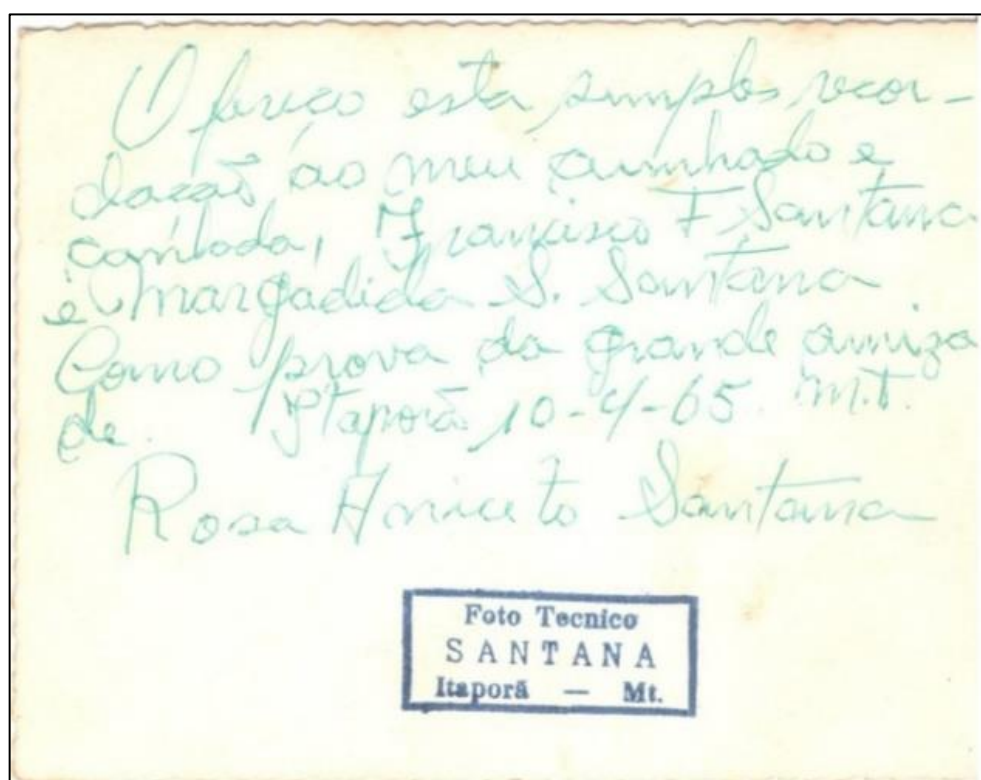 Ofereço esta simples recor-
dação ao meu cunhado e
cunhada, Francisco F Santana
e Margadida S. Santana
Como prova da grande amiza
de. Itaporã 10-4-65. M.T.
Rosa Aniceto Santana
Foto Tecnico
SANTANA
Itaporã — Mt.